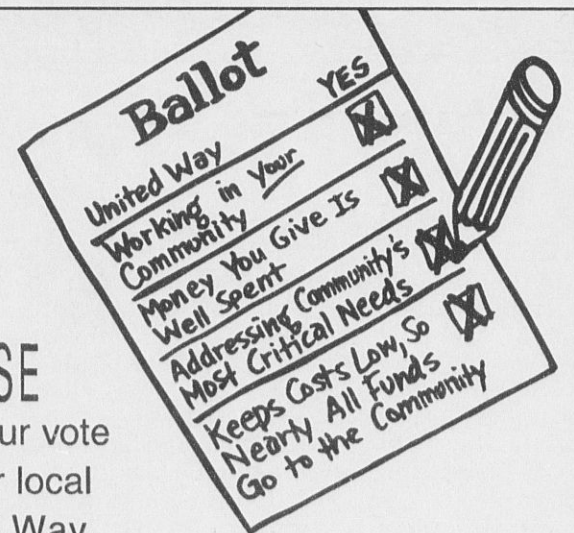 Ballot
YES
United Way
Working in Your
Community
Money You Give Is
Well Spent
Addressing Community's
Most Critical Needs
Keeps Costs Low, So
Nearly All Funds
Go to the Community
SE
ur vote
r local
Way